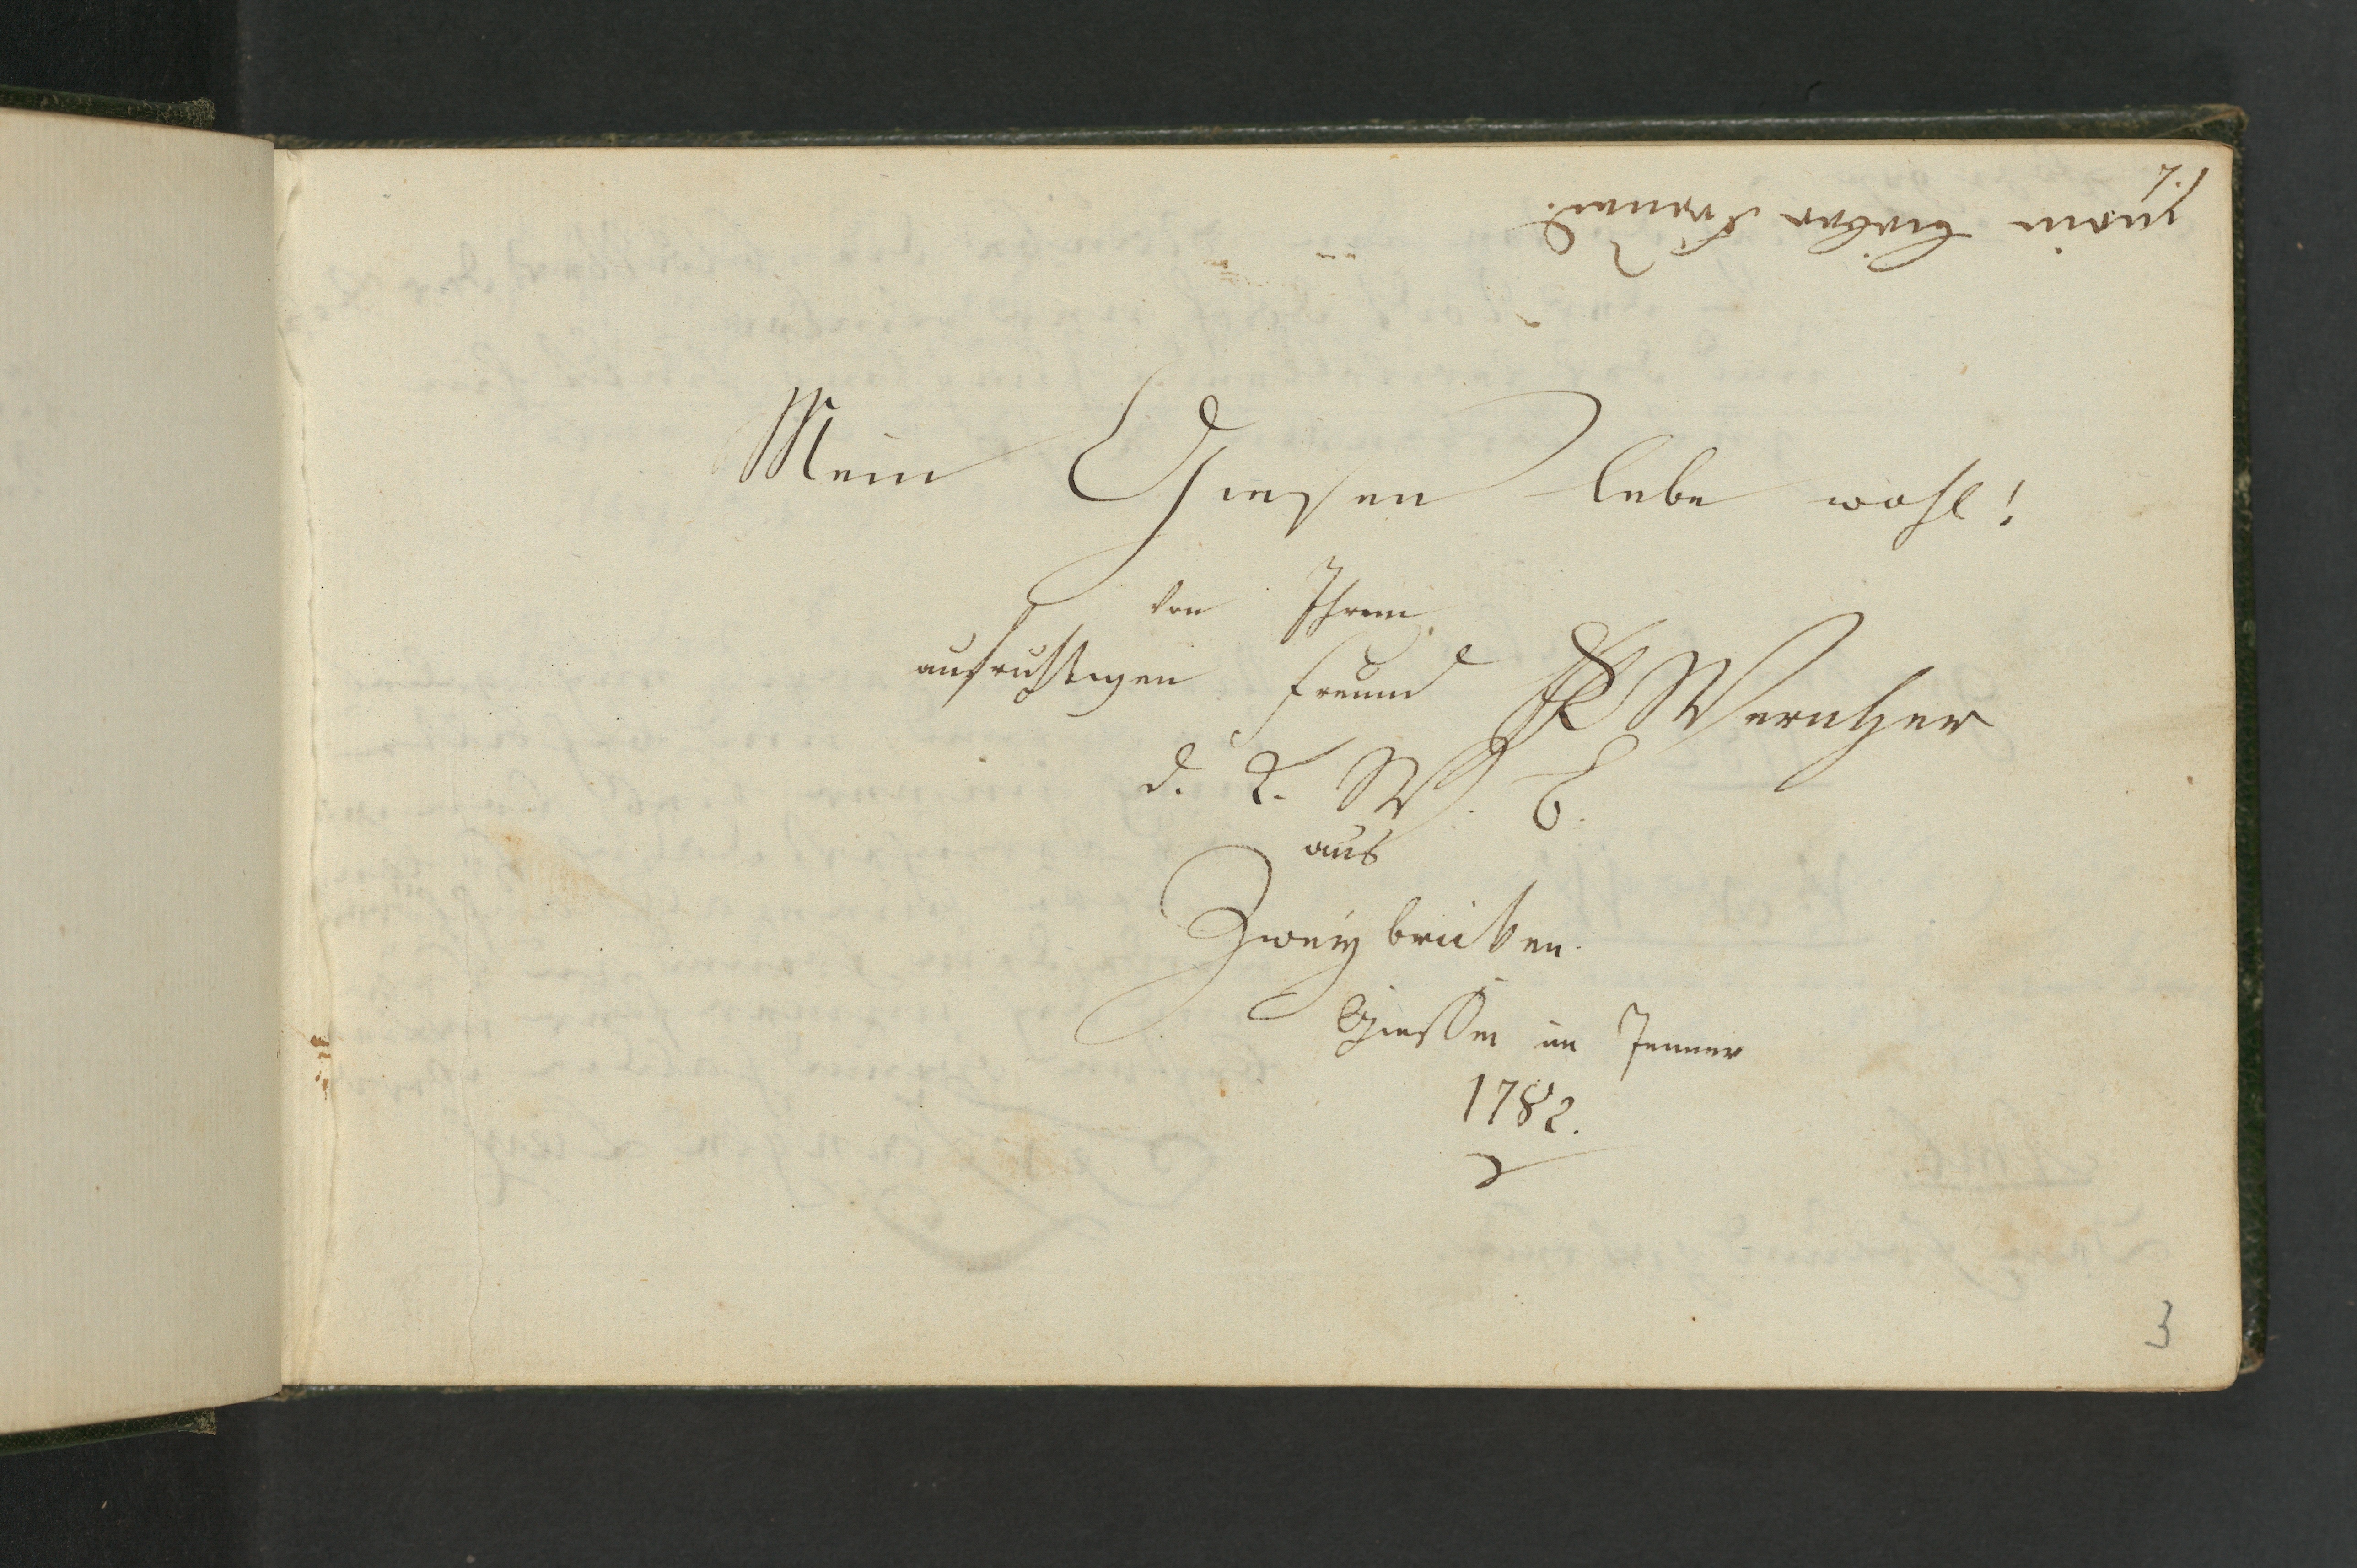 7.
mein lieber Freund.
Mein Giesen lebe wohl!
von Ihrem
aufrichtigen Freund Wernher
d. K. W. B.
aus
Zweybrücken.
Giessen im Jenner
1782.
3